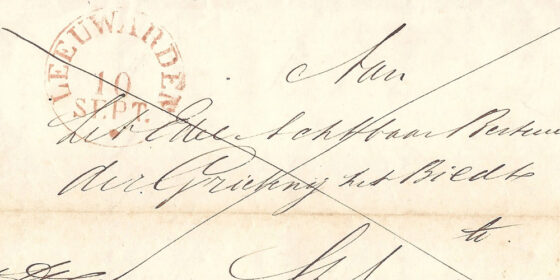 LEEUWARDEN
10
SEPT.
Aan
het Edel Achtbaar Bestuur
der Grietenij het Bildt
te